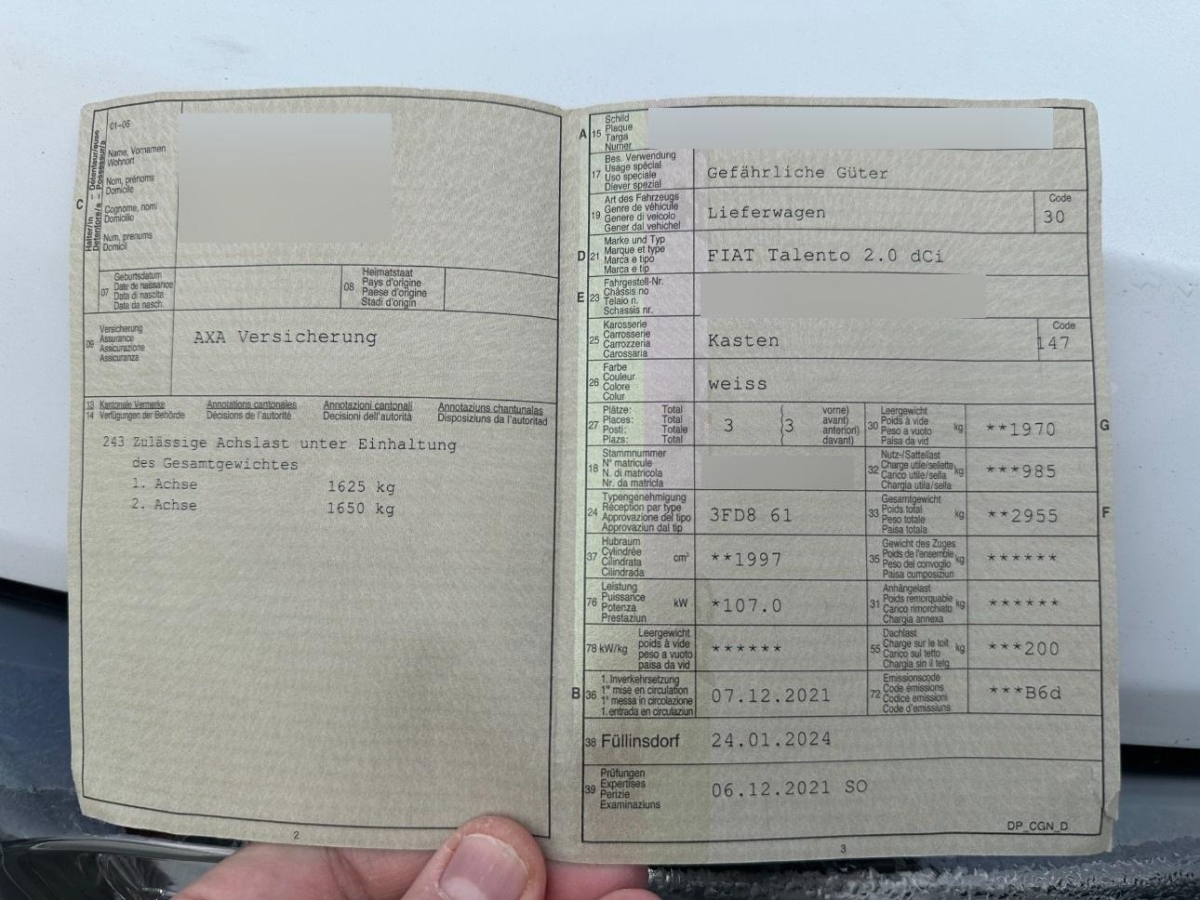 01-06
Halter/in – Détenteur/euse
Detentore/a – Possessur/a
C
Name, Vornamen
Wohnort
Nom, prénoms
Domicile
Cognome, nomi
Domicilio
Num, prenums
Domicil
07
Geburtsdatum
Date de naissance
Data di nascita
Data da nasch.
08
Heimatstaat
Pays d'origine
Paese d'origine
Stadi d'origin
09
Versicherung
Assurance
Assicurazione
Assicuranza
AXA Versicherung
13 Kantonale Vermerke Annotations cantonales Annotazioni cantonali Annotaziuns chantunalas
14 Verfügungen der Behörde Décisions de l'autorité Decisioni dell'autorità Disposiziuns da l'autoritad
243 Zulässige Achslast unter Einhaltung
des Gesamtgewichtes
1. Achse 1625 kg
2. Achse 1650 kg
2
A 15
Schild
Plaque
Targa
Numer
17
Bes. Verwendung
Usage spécial
Uso speciale
Diever spezial
Gefährliche Güter
19
Art des Fahrzeugs
Genre de véhicule
Genere di veicolo
Gener dal vehichel
Lieferwagen
Code
30
D 21
Marke und Typ
Marque et type
Marca e tipo
Marca e tip
FIAT Talento 2.0 dCi
E 23
Fahrgestell-Nr.
Châssis no
Telaio n.
Schassis nr.
25
Karosserie
Carrosserie
Carrozzeria
Carossaria
Kasten
Code
147
26
Farbe
Couleur
Colore
Colur
weiss
27
Plätze: Total
Places: Total
Posti: Totale
Plazs: Total
3 (3
vorne)
avant)
anteriori)
davant)
30
Leergewicht
Poids à vide
Peso a vuoto
Paisa da vid
kg
**1970
G
18
Stammnummer
N° matricule
N. di matricola
Nr. da matricla
32
Nutz-/Sattellast
Charge utile/sellette
Carico utile/sella
Chargia utila/sella
kg
***985
24
Typengenehmigung
Réception par type
Approvazione del tipo
Approvaziun dal tip
3FD8 61
33
Gesamtgewicht
Poids total
Peso totale
Paisa totala
kg
**2955
F
37
Hubraum
Cylindrée
Cilindrata
Cilindrada
cm³
**1997
35
Gewicht des Zuges
Poids de l'ensemble
Peso del convoglio
Paisa cumposiziun
kg
******
76
Leistung
Puissance
Potenza
Prestaziun
kW
*107.0
31
Anhängelast
Poids remorquable
Carico rimorchiato
Chargia annexa
kg
******
78 kW/kg
Leergewicht
poids à vide
peso a vuoto
paisa da vid
******
55
Dachlast
Charge sur le toit
Carico sul tetto
Chargia sin il tetg
kg
***200
B 36
1. Inverkehrsetzung
1re mise en circulation
1a messa in circolazione
1. entrada en circulaziun
07.12.2021
72
Emissionscode
Code émissions
Codice emissioni
Code d'emissiuns
***B6d
38 Füllinsdorf 24.01.2024
39
Prüfungen
Expertises
Perizie
Examinaziuns
06.12.2021 SO
DP_CGN_D
3